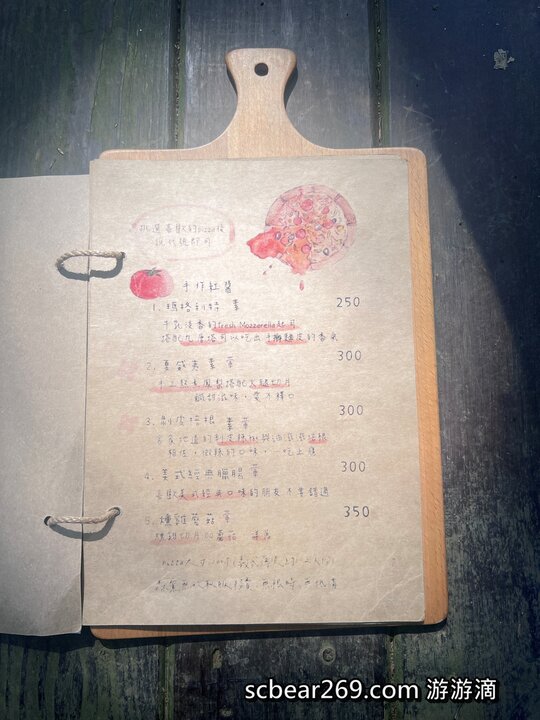 挑選喜歡的pizza後
說代號即可
手作紅醬
1. 瑪格利特 素 250
牛乳淡香的fresh Mozzerella起司
搭配九層塔可以吃出手揉麵皮的香氣
2. 夏威夷 素 葷 300
手工熬煮鳳梨搭配火腿切片
鹹甜滋味,愛不釋口
3. 剝皮培根 素 葷 300
客家地道的剝皮辣椒與油滋滋培根
相佐,微辣的口味,一吃上癮
4. 美式經典臘腸 葷 300
喜歡美式經典口味的朋友不要錯過
5. 燻雞蘑菇 葷 350
燻雞切片和蘑菇
scbear269.com 游游滴